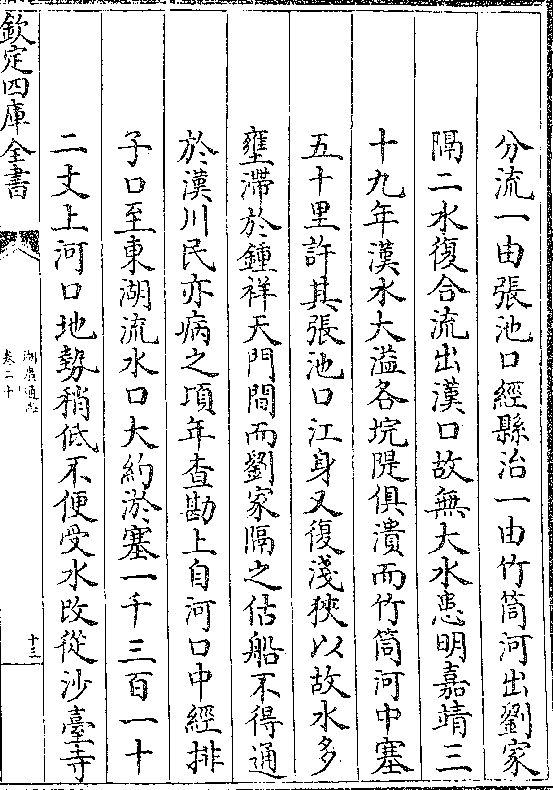 分流一由張池口經縣治一由竹筒河出劉家
隔二水復合流出漢口故無大水患明嘉靖三
十九年漢水大溢各垸隄俱潰而竹筒河中塞
五十里許其張池口江身又復淺狹以故水多
壅滯於鍾祥天門間而劉家隔之估船不得通
於漢川民亦病之頃年查勘上自河口中經排
子口至東湖流水口大約淤塞一千三百一十
二丈上河口地勢稍低不便受水改從沙臺寺
欽定四庫全書
湖廣通志
卷二十
十三